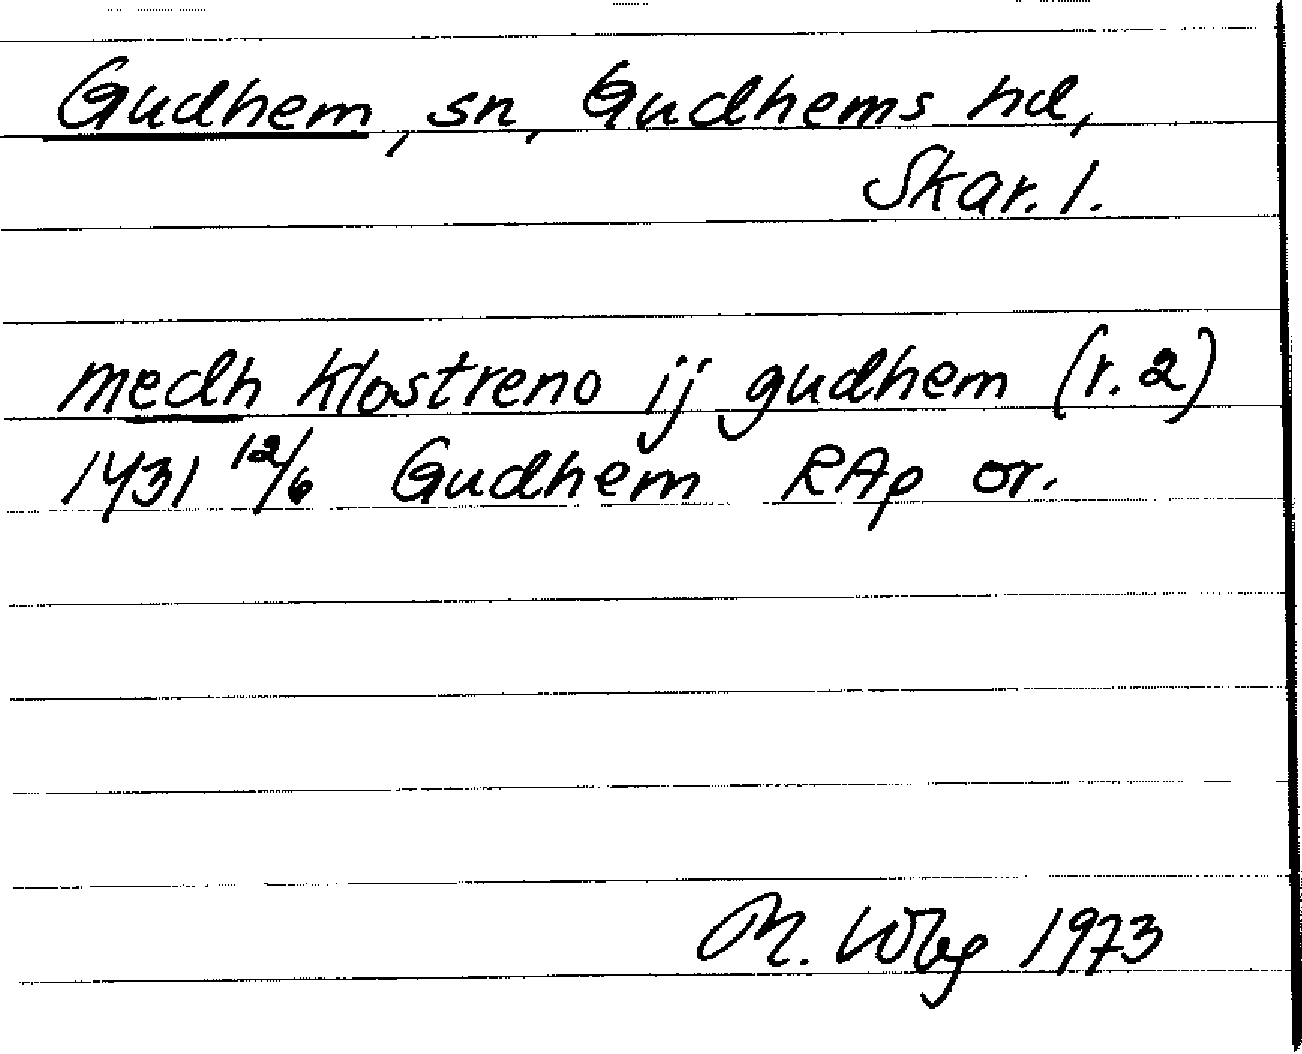 Gudhem, sn, Gudhems hd,
Skar. l.
medh klostreno ij gudhem (r. 2)
1431 12/6 Gudhem RAp or.
M. Wbg 1973